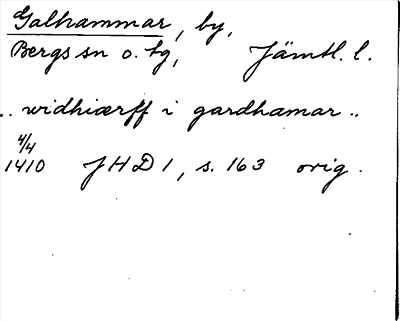 Galhammar, by,
Bergs sn o. tg, Jämtl. l.
.. widhiærff i gardhamar ..
4/4
1410 JHD 1, s. 163 orig.